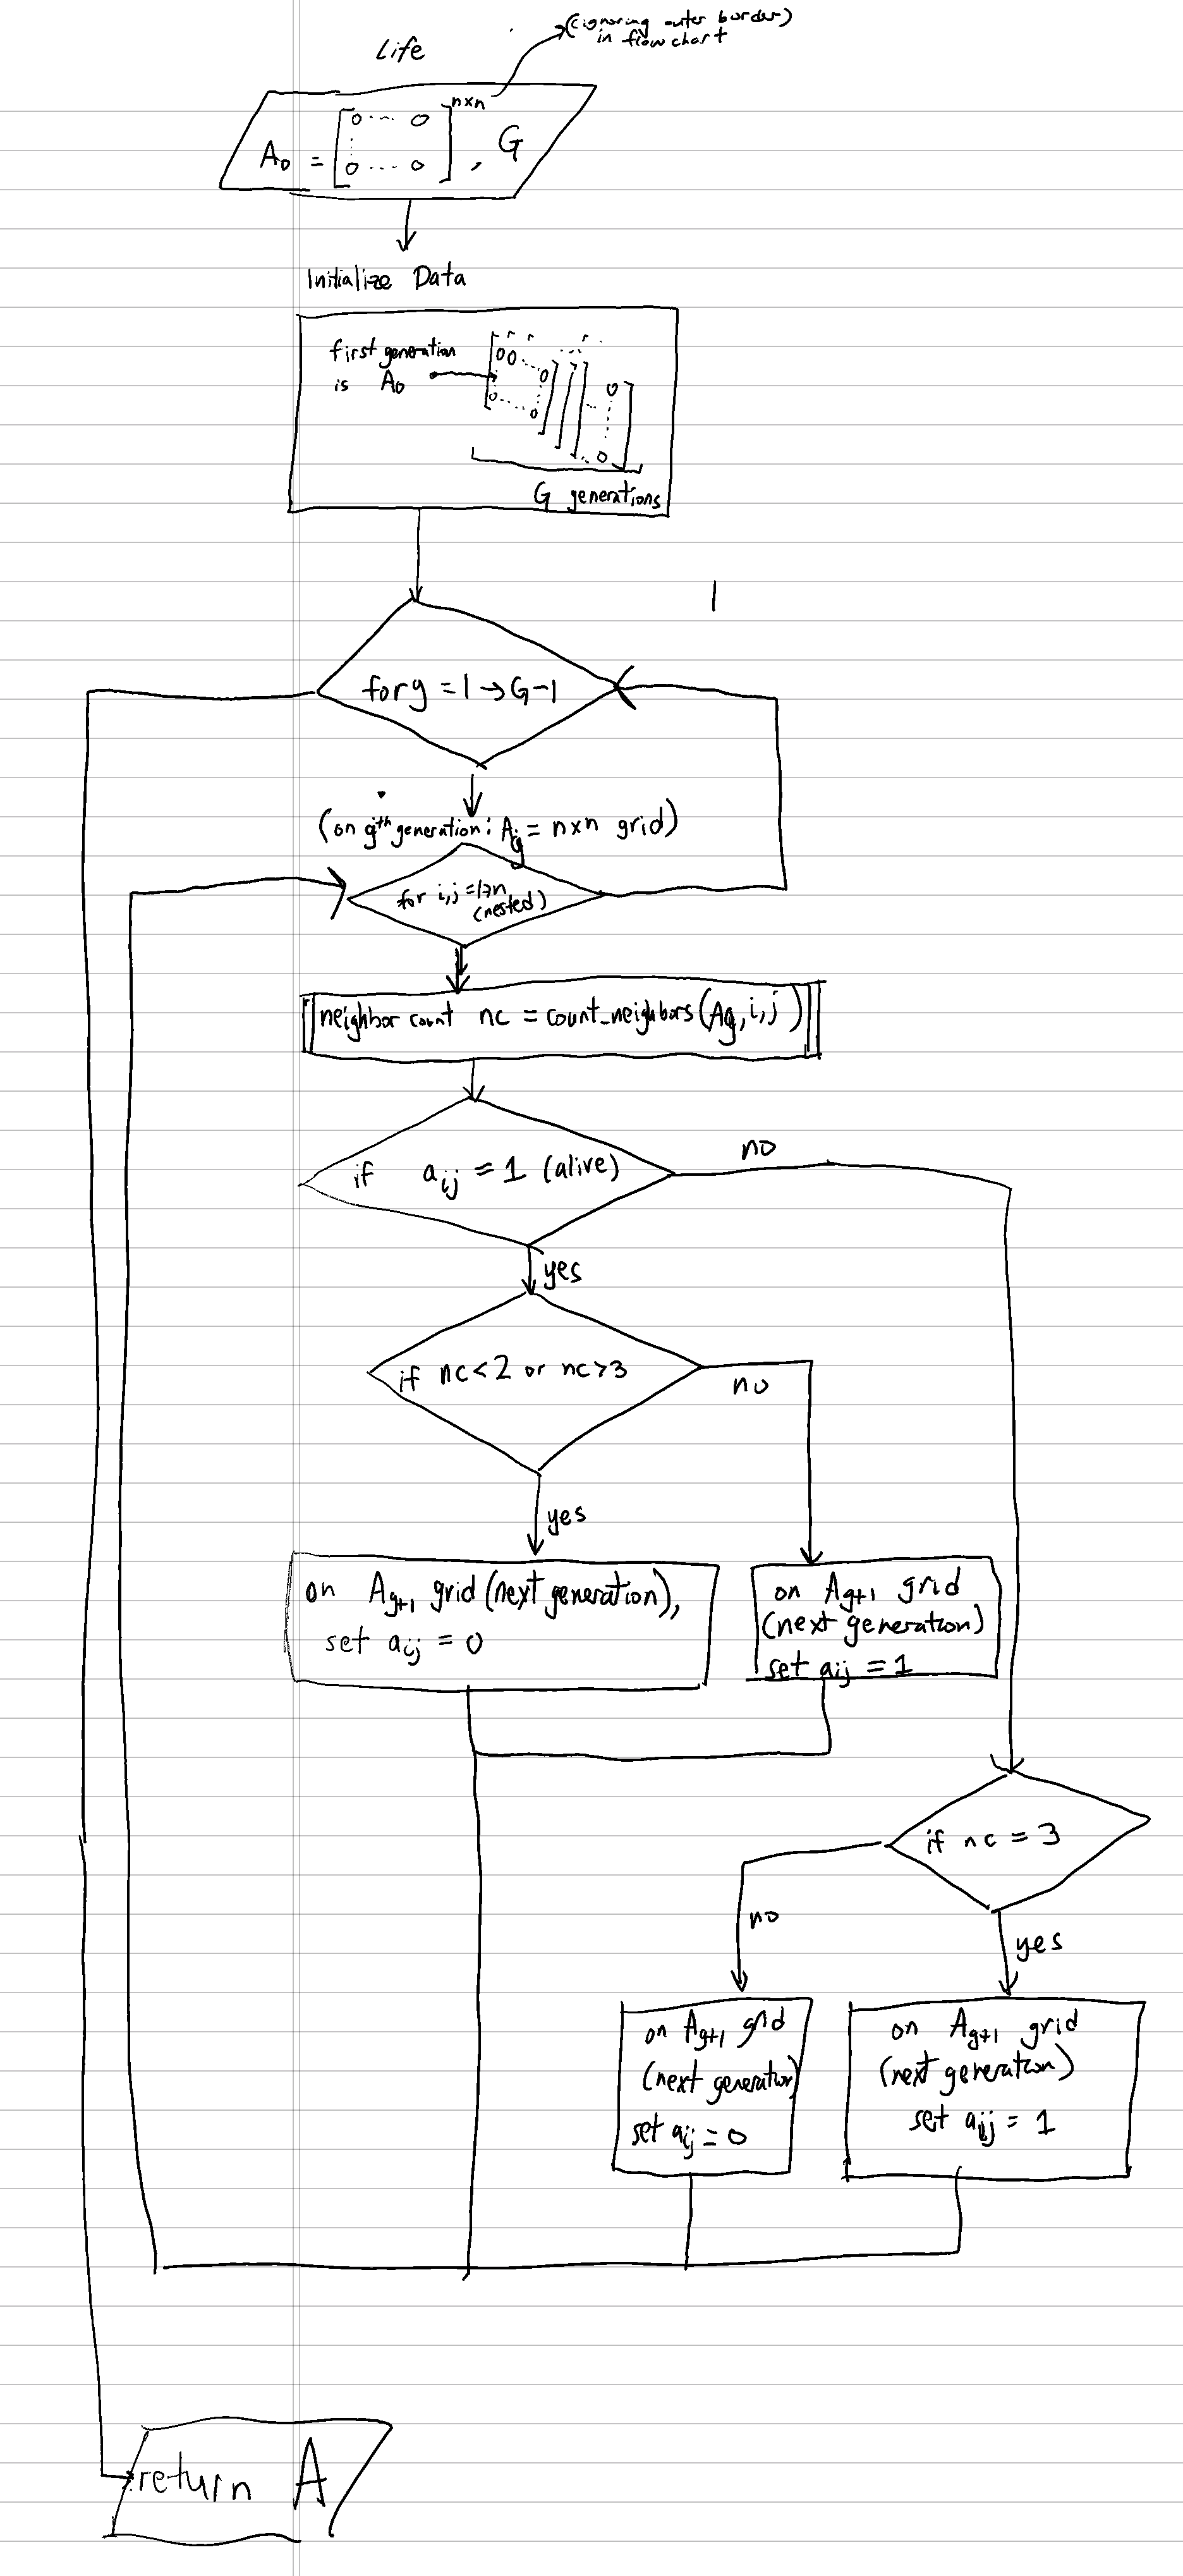 (ignoring outer border)
in flowchart
Life
A₀ = [0 ... 0 0 ... 0]ⁿˣⁿ, G
Initialize Data
first generation
is A₀
00
0
0
0
0
0
G generations
for g = 1 → G-1
(on gᵗʰ generation: A_g = n×n grid)
for i,j = 1→n
(nested)
neighbor count nc = count_neighbors(A_g, i, j)
if a_ij = 1 (alive)
no
yes
if nc < 2 or nc > 3
no
yes
on A_g+1 grid (next generation),
set a_ij = 0
on A_g+1 grid
(next generation)
set a_ij = 1
if nc = 3
no
yes
on A_g+1 grid
(next generation)
set a_ij = 0
on A_g+1 grid
(next generation)
set a_ij = 1
return A